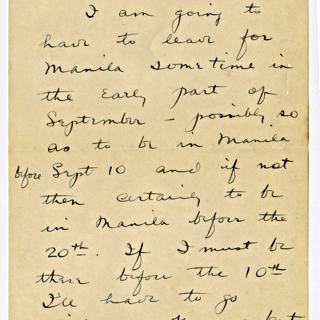 I am going to
have to leave for
Manila sometime in
the early part of
September – possibly so
as to be in Manila
before Sept 10 and if not
then certainly to be
in Manila before the
20th. If I must be
there before the 10th
I'll have to go